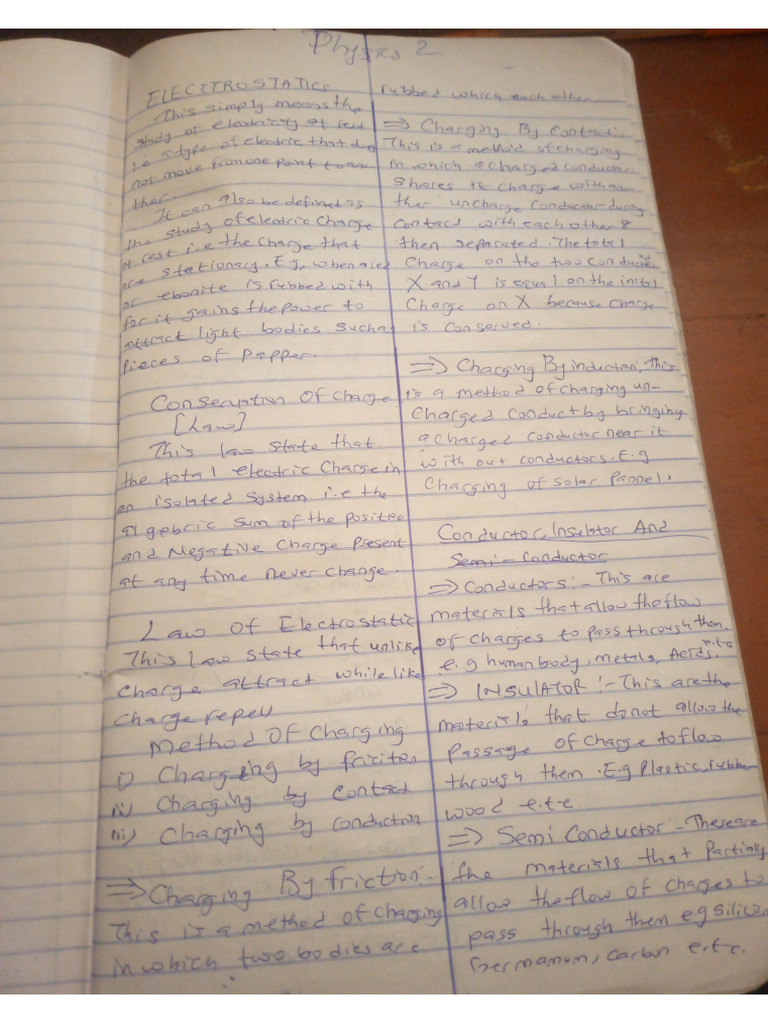 Physics 2
ELECTROSTATICS
This simply means the
study of electricity at rest
i.e a type of electric that do
not move from one point to an
ther.
It can also be defined as
the study of electric charge
at rest i.e the charge that
are stationary. E.g, when a
or ebonite is rubbed with
for it gains the power to
attract light bodies such a
Pieces of Papper.
Conservation Of Charge
[Law]
This law state that
the total electric Charge in
an isolated system i.e the
algebric sum of the positive
and Negative Charge Present
at any time never change.
Law of Electrostatic
This Law state that unlike
charge attract while like
charge repell
Method Of Charging
i) Charging by friction
ii) Charging by Contact
iii) Charging by conduction
⇒ Charging By friction:-
This is a method of charging
in which two bodies are
rubbed which each other
⇒ Charging By Contact:-
This is a method of charging
in which a charged conductor
shares it charge with ano
ther uncharge conductor during
contact with each other &
then separated. The total
Charge on the two conductor
X and Y is equal on the initial
Charge on X because charge
is conserved.
⇒ Charging By induction, This
is a method of charging un-
Charged conduct by bringing
a charged conductor near it
with out conductors. E.g
Charging of solar Pannel.
Conductor, Insulator And
Semi-Conductor
⇒ Conductors:- This are
materials that allow the flow
of charges to pass through them.
e.g human body, metals, Acids. e.t.c
⇒ INSULATOR:- This are the
materials that do not allow the
Passage of Charge to flow
through them. E.g Plastic, rubber
wood e.t.c.
⇒ Semi Conductor:- These are
the materials that Partially
allow the flow of charges to
pass through them eg silicon
Germanum, carbon e.t.c.